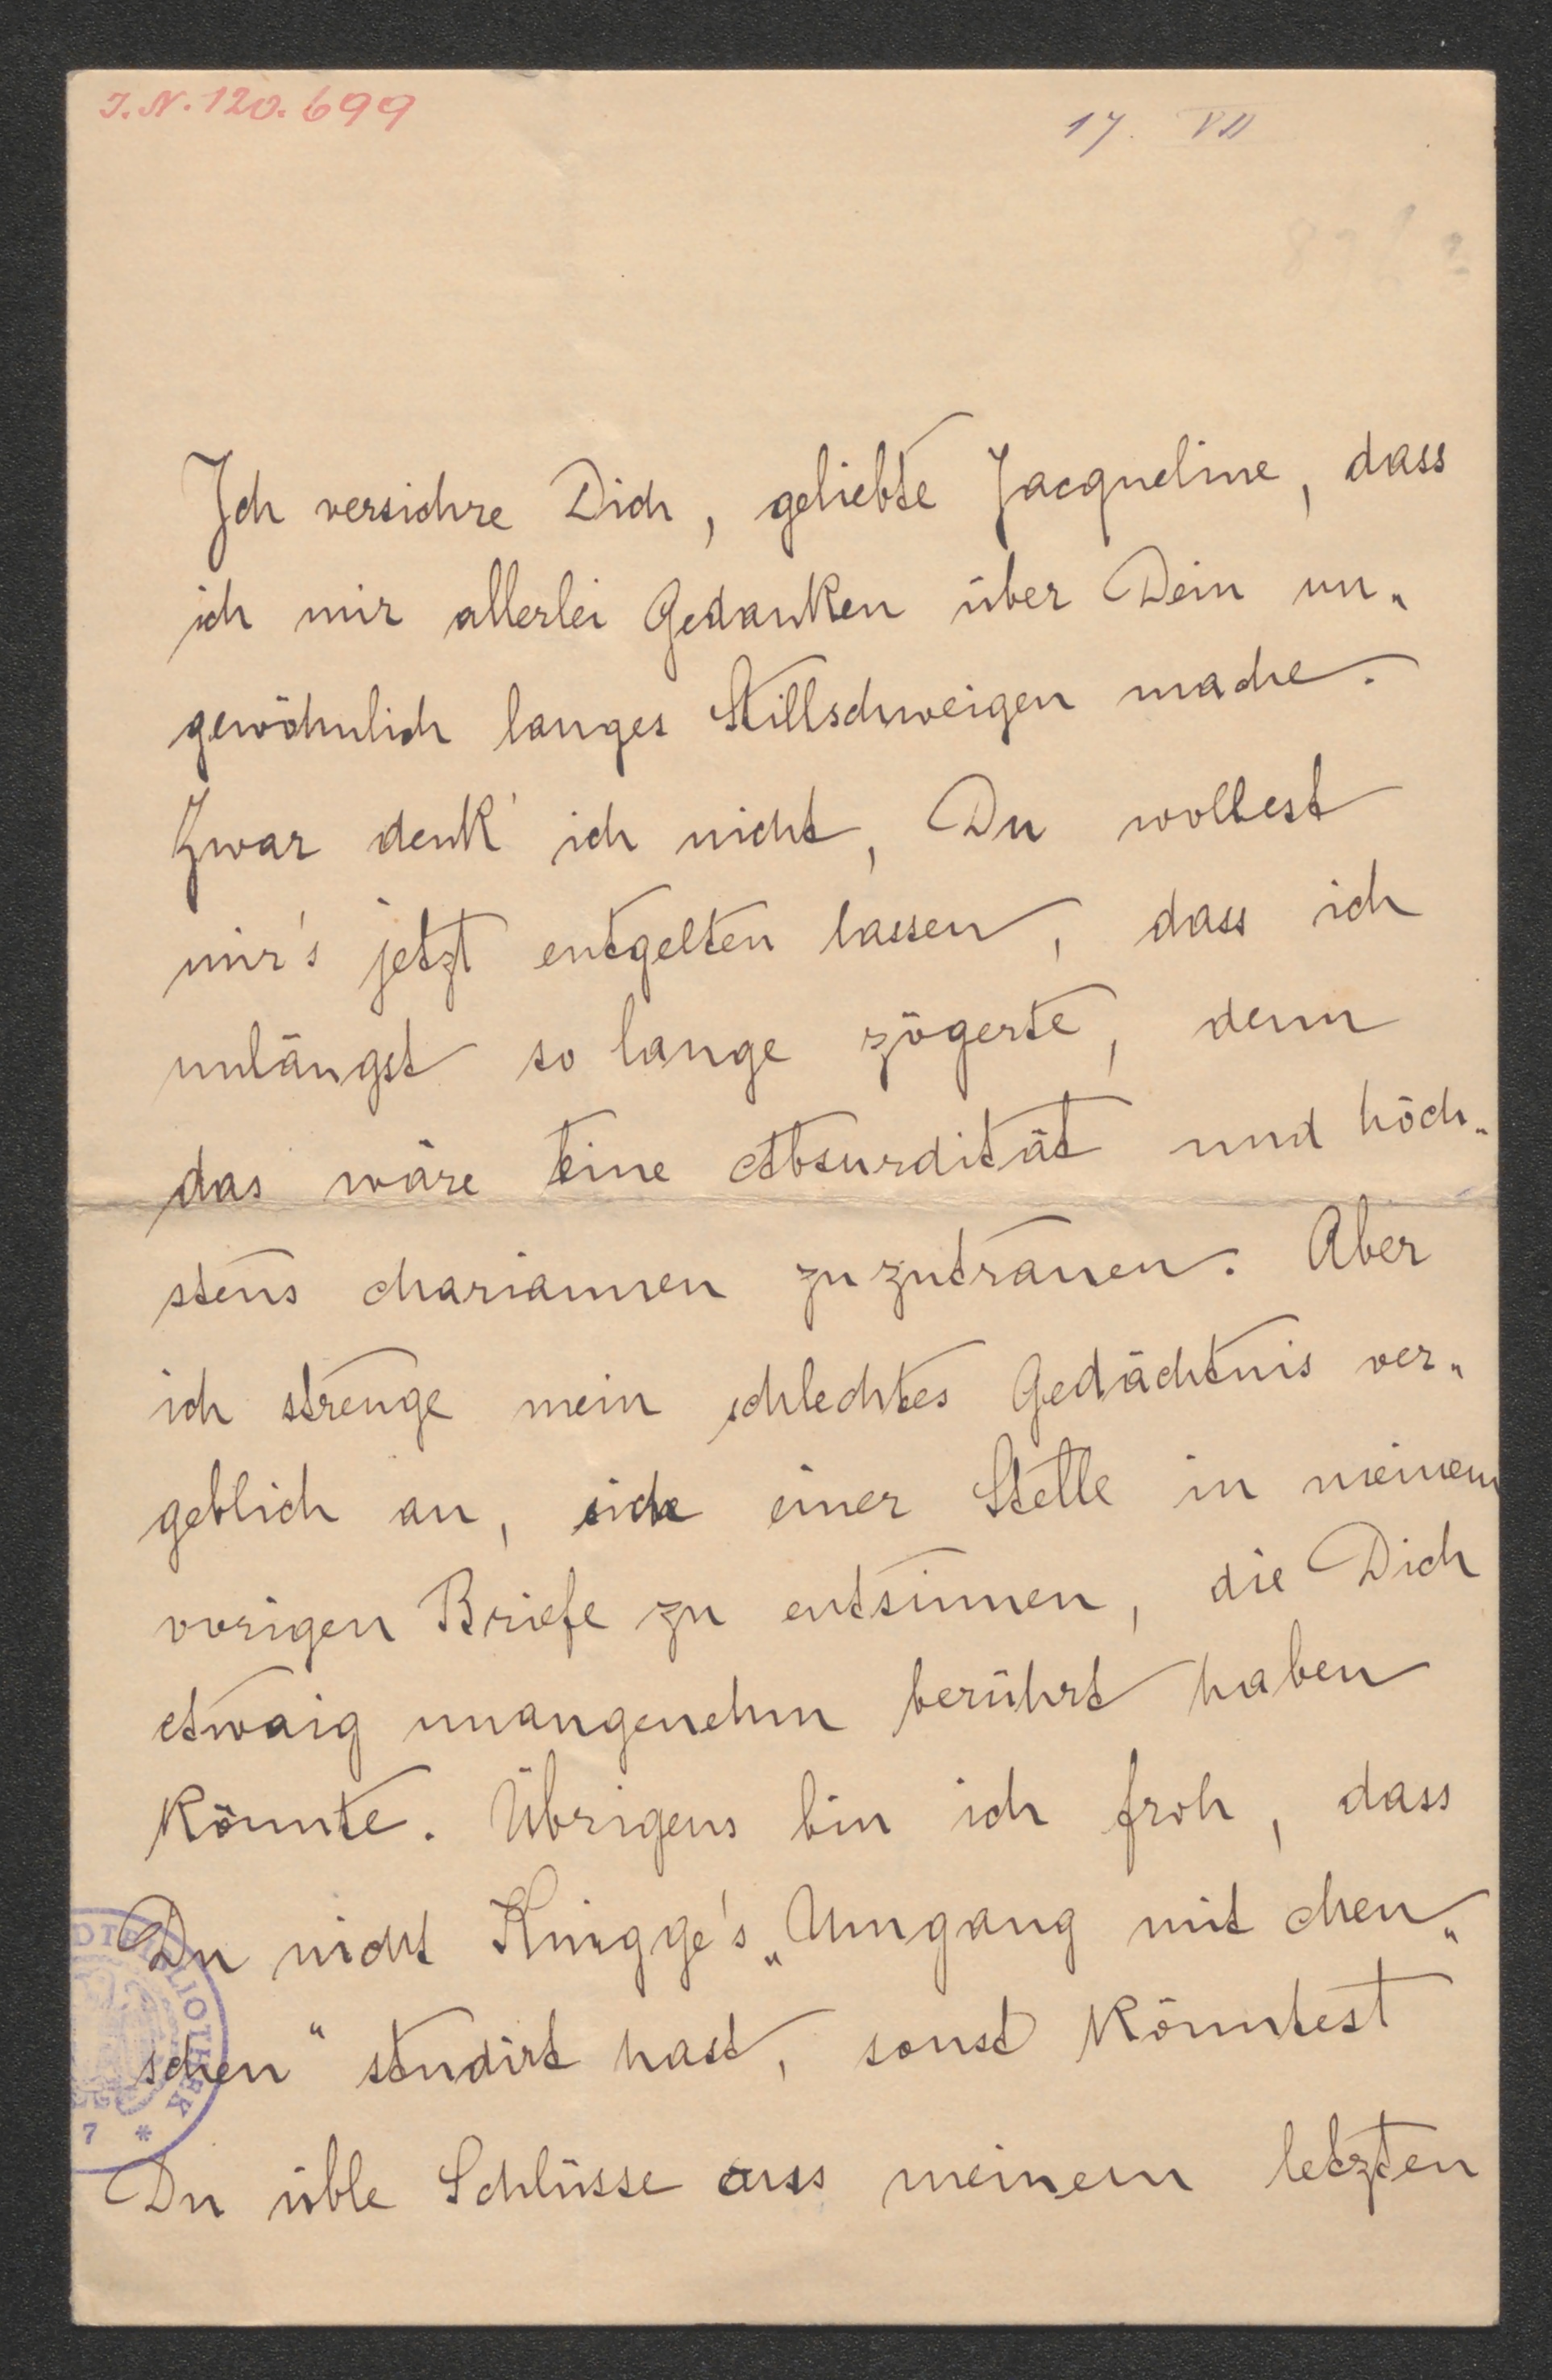 I.N. 120.699
17. VII
Ich versichre Dich, geliebte Jacqueline, dass
ich mir allerlei Gedanken über Dein un„
gewöhnlich langes Stillschweigen mache.
Zwar denk' ich nicht, Du wollest
mir's jetzt entgelten lassen, dass ich
unlängst so lange zögerte, denn
das wäre eine Absurdität und höch„
stens Mariannen zuzutrauen. Aber
ich strenge mein schlechtes Gedächtnis ver„
geblich an, sich einer Stelle in meinem
vorigen Briefe zu entsinnen, die Dich
etwaig unangenehm berührt haben
könnte. Übrigens bin ich froh, dass
Du nicht Knigge's „Umgang mit Men„
schen“ studirt hast, sonst könntest
Du üble Schlüsse aus meinem letzten
7 *